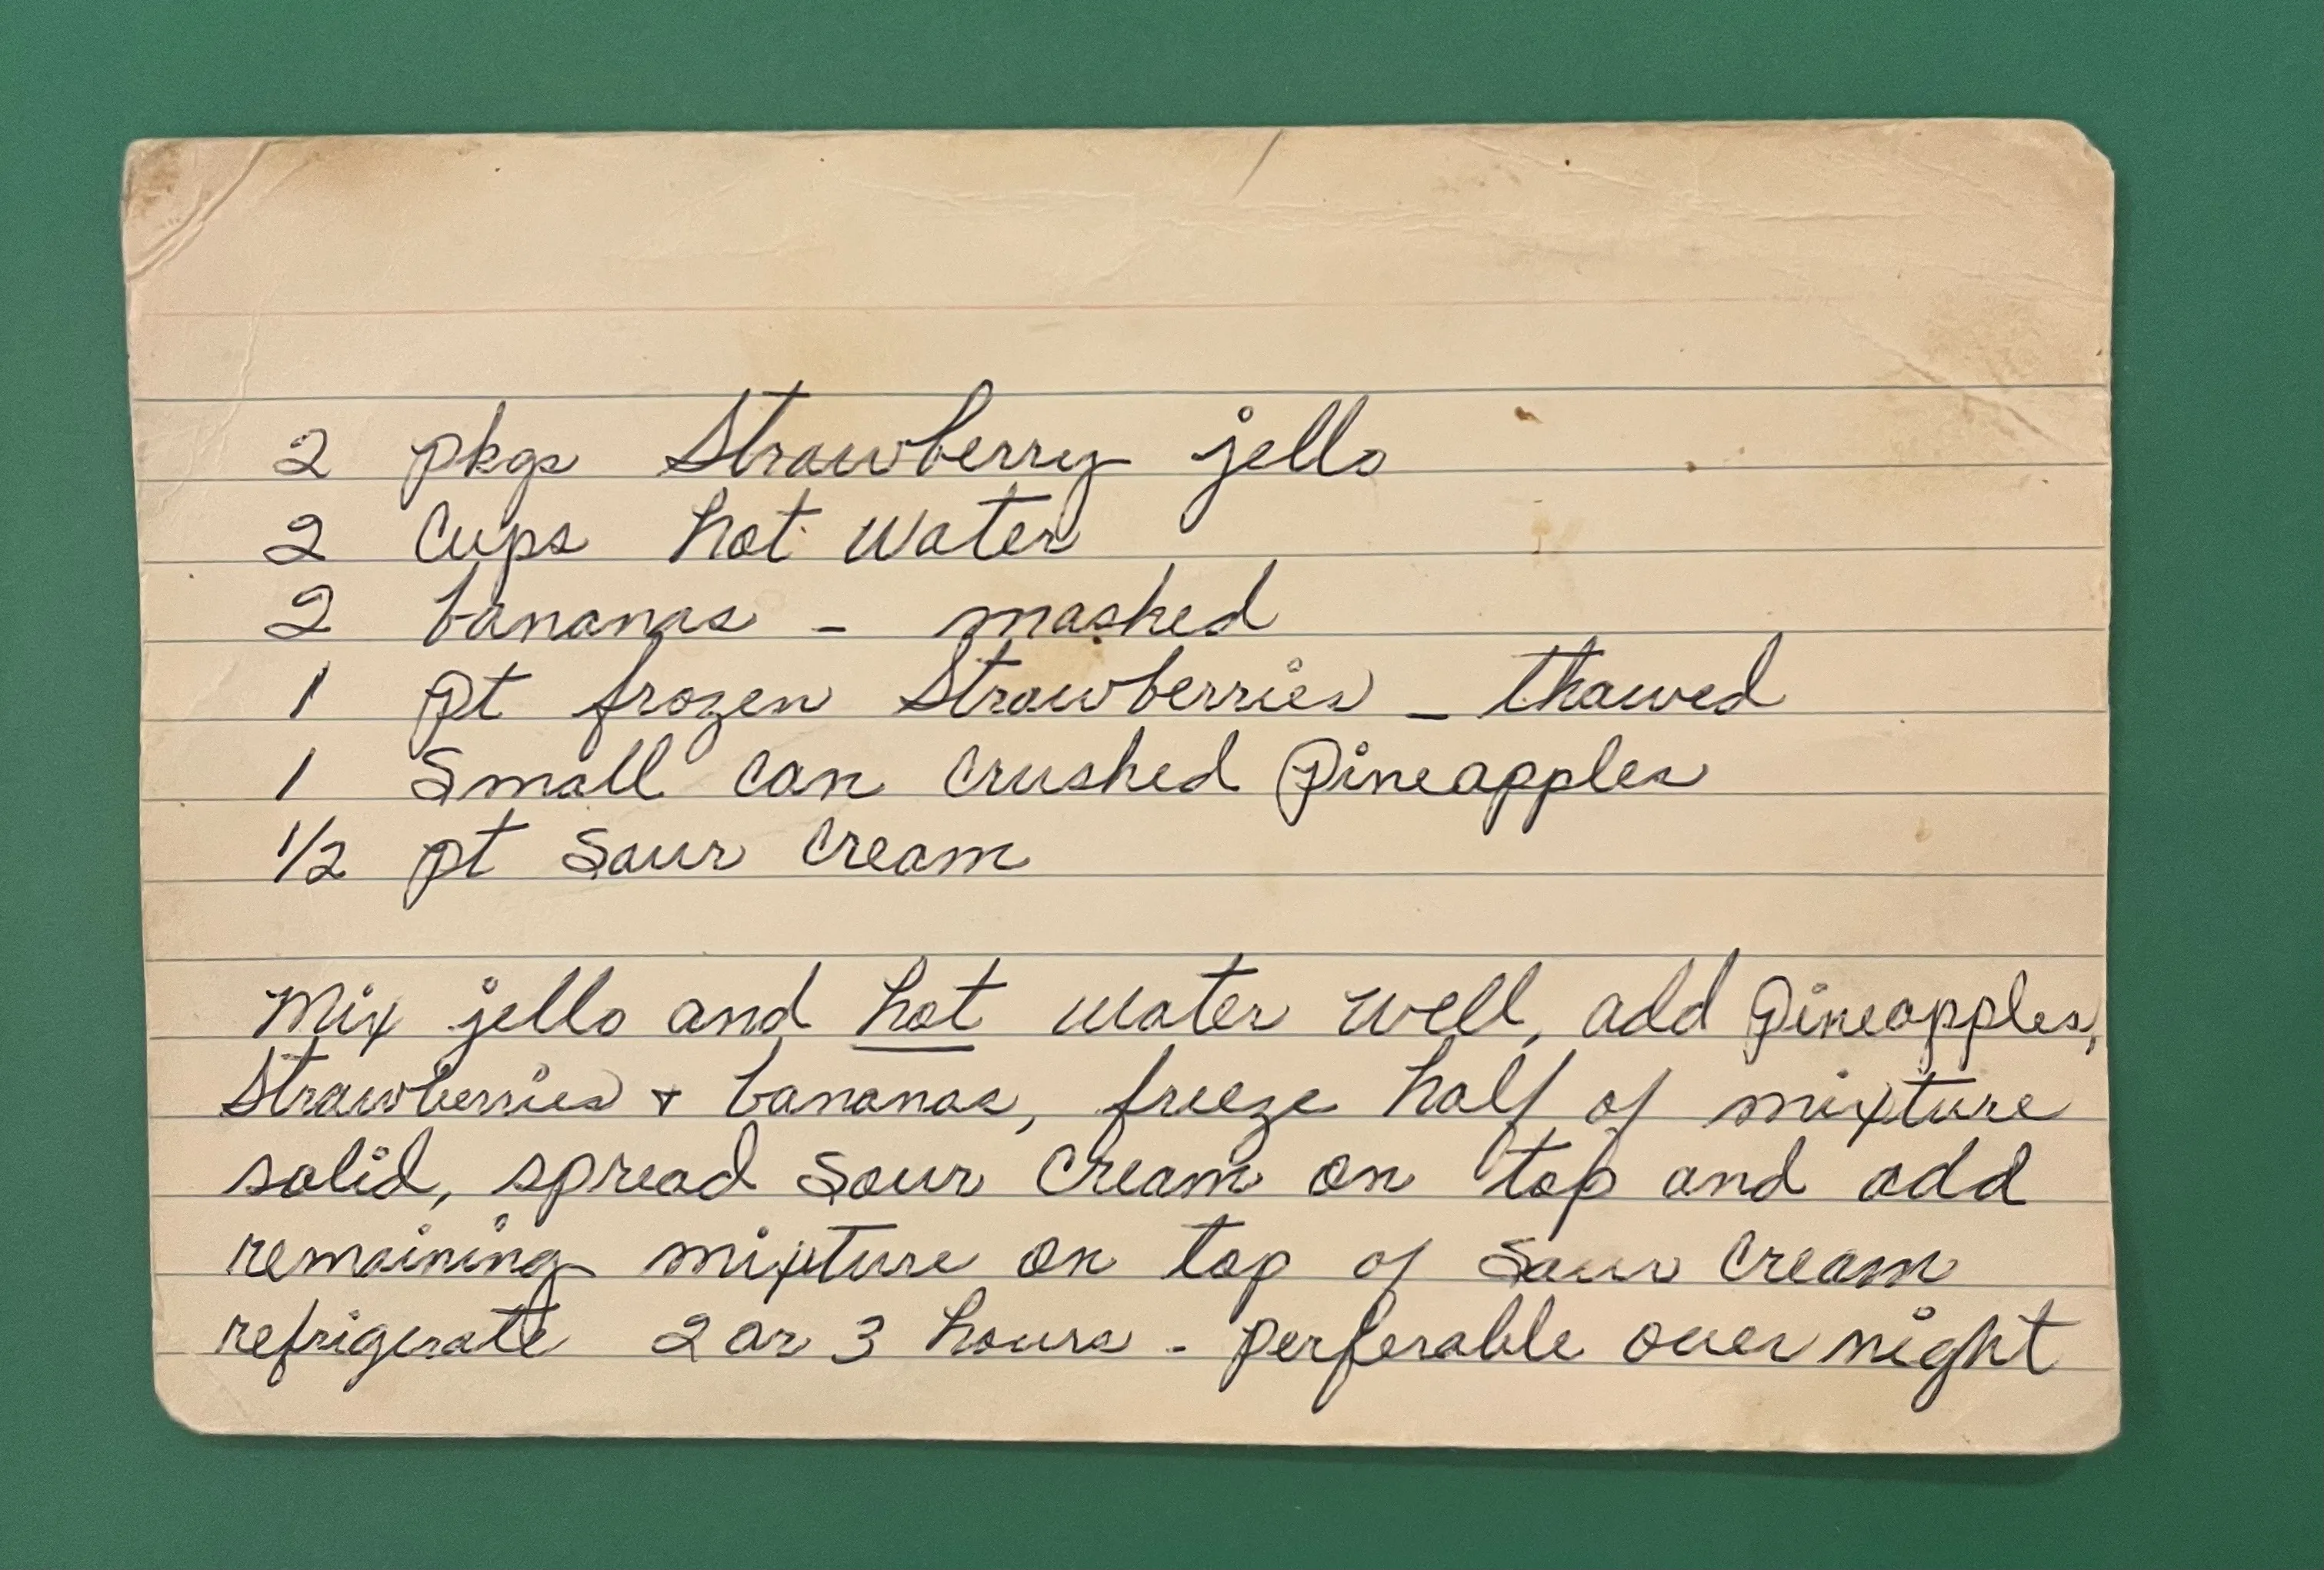 2 pkgs Strawberry jello
2 Cups hot water
2 bananas - mashed
1 pt frozen Strawberries - thawed
1 Small can crushed Pineapples
1/2 pt Sour Cream
Mix jello and hot water well, add Pineapples,
Strawberries + bananas, freeze half of mixture
solid, spread Sour Cream on top and add
remaining mixture on top of Sour Cream
refrigerate 2 or 3 hours - perferable over night